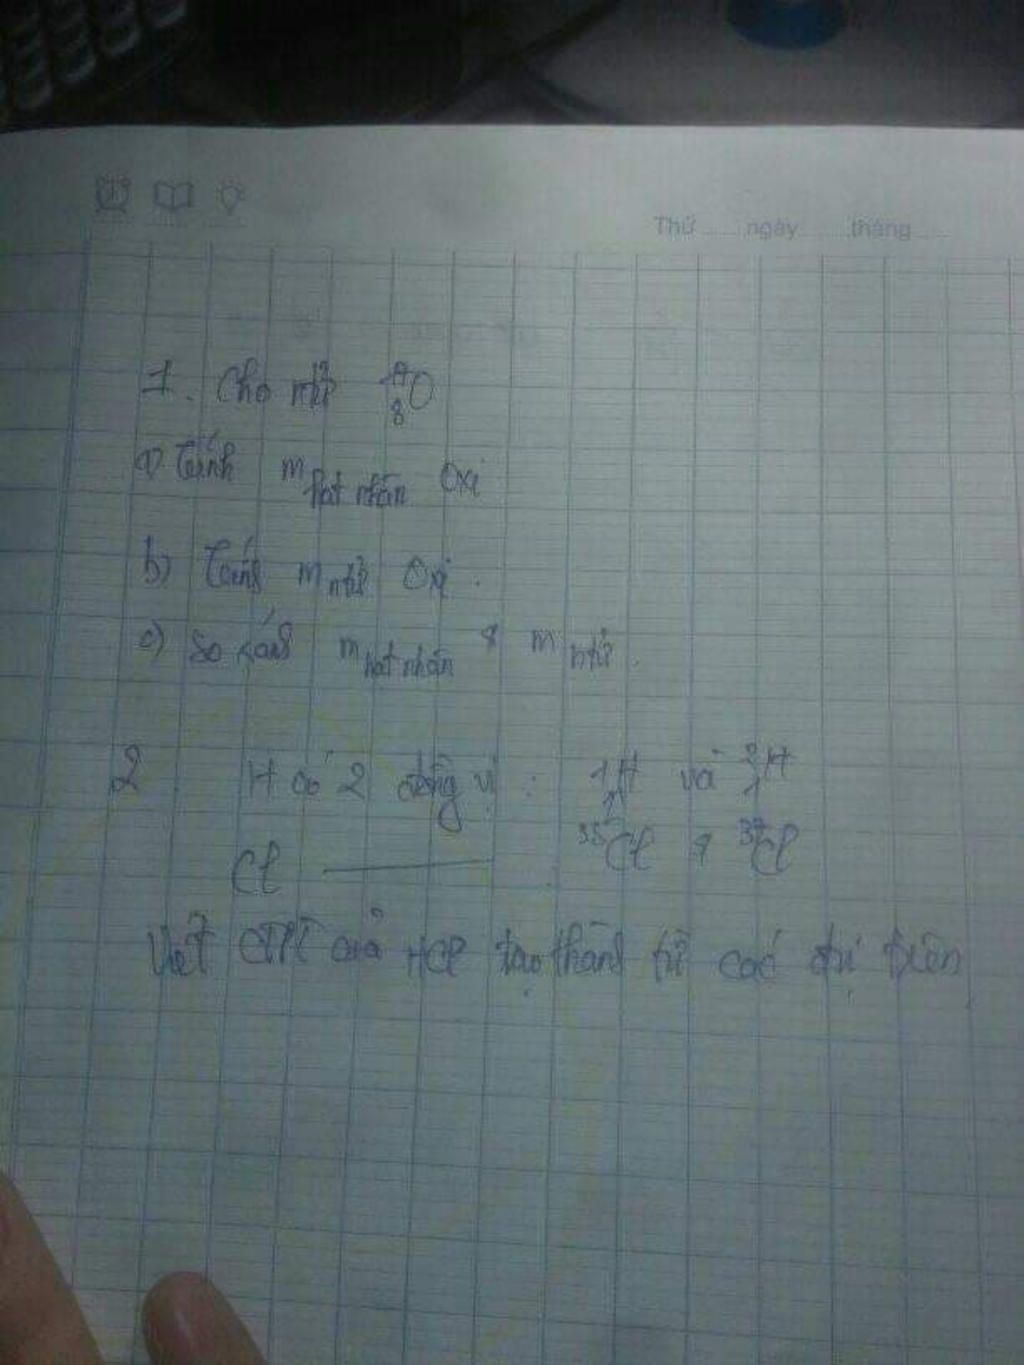 Thứ ngày tháng
1. Cho ntử ¹⁷₈O
a) Tính m hạt nhân Oxi
b) Tính m ntử Oxi.
c) So sánh m hạt nhân & m ntử.
2. H có 2 đồng vị: ¹₁H và ²₁H
Cl ——— ³⁵Cl & ³⁷Cl
Viết CTPT của HCl tạo thành từ các đvị trên